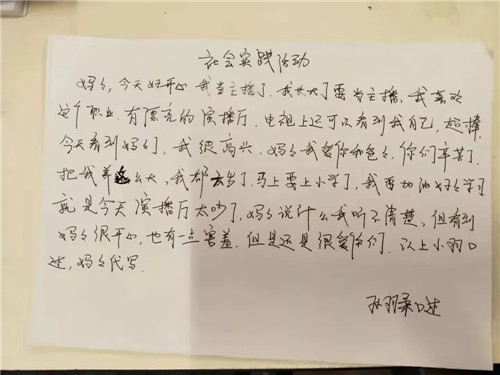 社会实践活动
妈妈,今天好开心 我当主播了,我长大了要当主播、我喜欢
这个职业.有漂亮的演播厅.电视上还可以看到我自己,超棒
今天看到妈妈了,我很高兴.妈妈我爱你和爸爸,你们辛苦了.
把我养这么大、我都六岁了.马上要上小学了,我要加油好好学习
就是今天演播厅太吵了,妈妈说什么我听不清楚、但看到
妈妈很开心,也有一点害羞.但是还是很爱你们.以上小羽口
述,妈妈代写.
羽柔口述